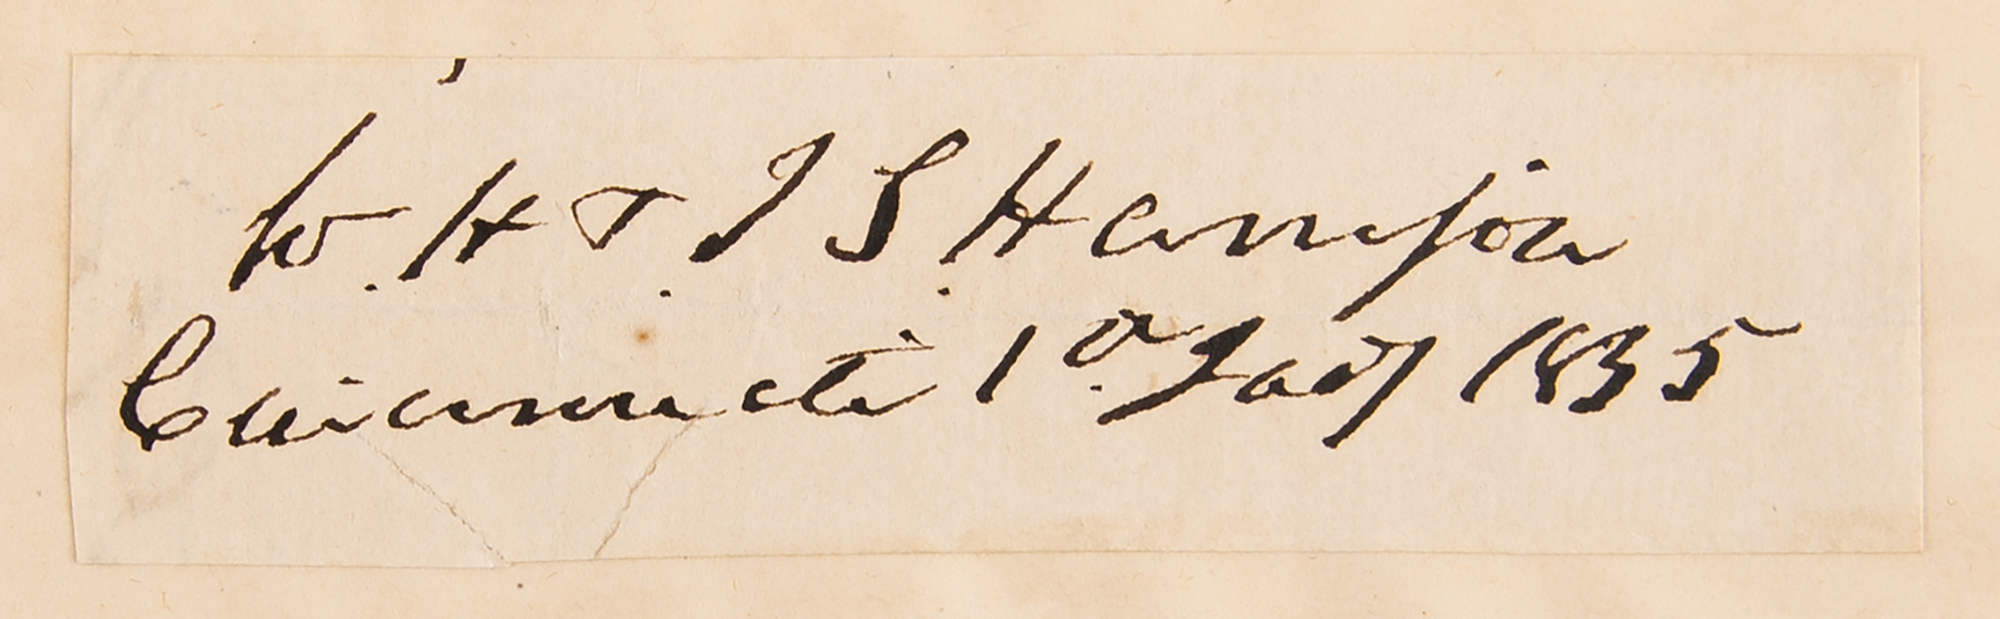 W. H & J. S. Harrison
Cincinnati 1st. Jany 1835